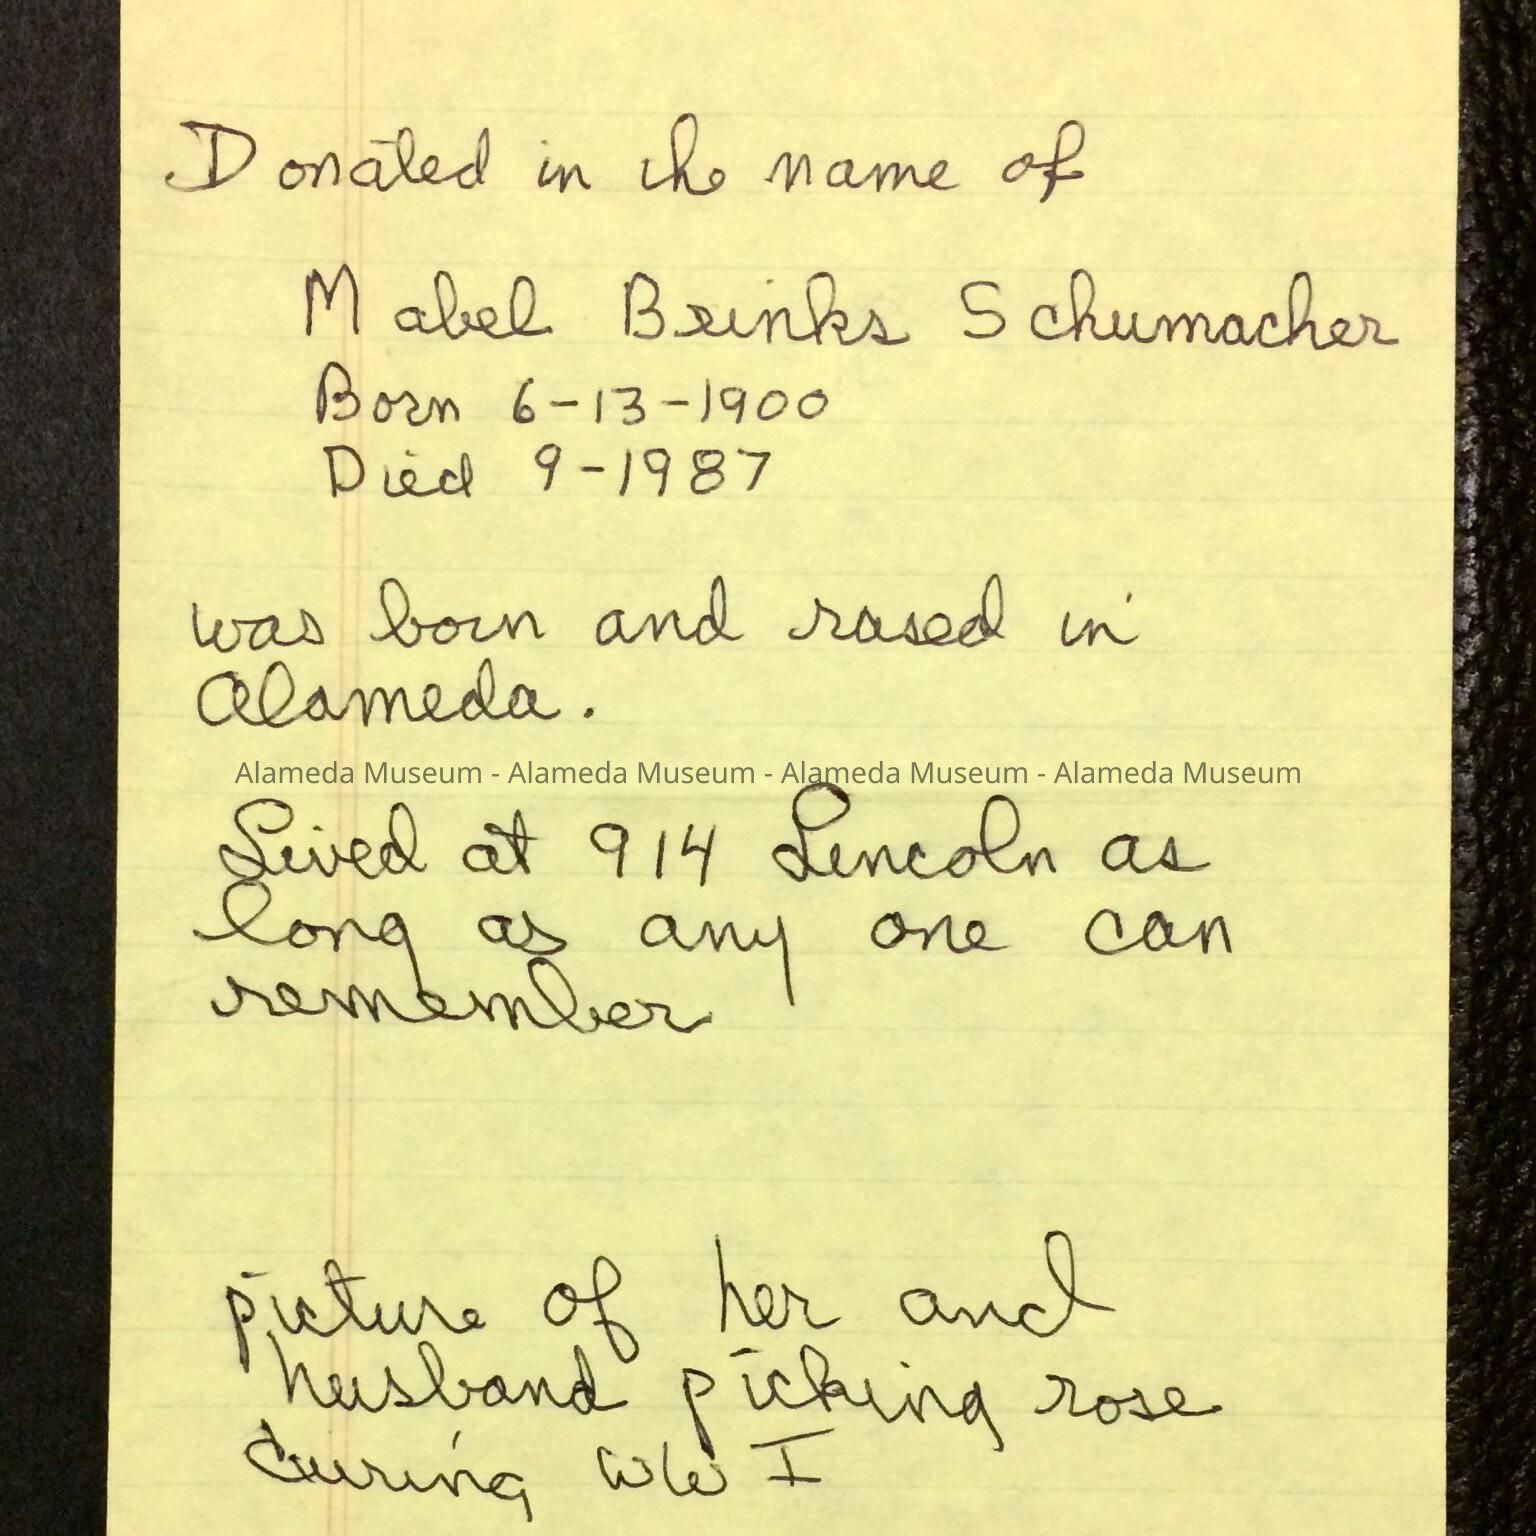 Donated in the name of
Mabel Brinks Schumacher
Born 6-13-1900
Died 9-1987
was born and rased in
Alameda.
Alameda Museum - Alameda Museum - Alameda Museum - Alameda Museum
Lived at 914 Lincoln as
long as any one can
remember
picture of her and
husband picking rose
during WW I